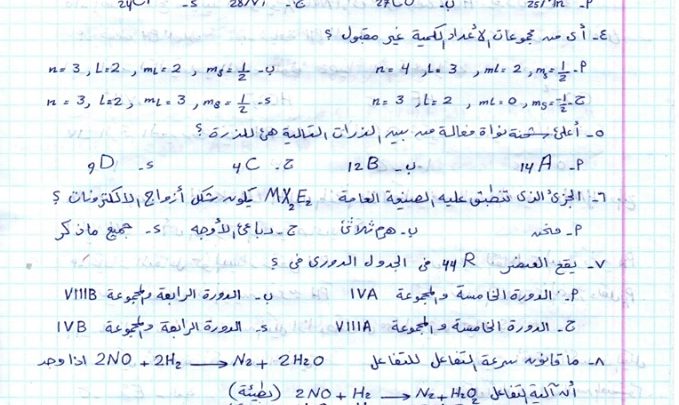 أ- 25Mn ب- 27Co ج- 28Ni د- 24Cr
٤- أى من مجموعات الأعداد الكمية غير مقبول ؟
أ- n= 4, L= 3, ml= 2, ms= 1/2 ب- n= 3, L=2, mL= 2, ms= 1/2
ج- n= 3, L= 2, mL= 0, ms= -1/2 د- n= 3, L=2, mL= 3, ms= 1/2
٥- أعلى شحنة نواة فعالة من بين الذرات التالية هى للذرة ؟
أ- 14A ب- 12B ج- 4C د- 9D
٦- الجزئ الذى تنطبق عليه الصيغة العامة MX2E2 يكون شكل أزواج الالكترونات ؟
أ- منحن ب- هرم ثلاثى ج- رباعى الأوجه د- جميع ماذكر
٧- يقع العنصر 44R فى الجدول الدورى فى ؟
أ- الدورة الخامسة والمجموعة IVA ب- الدورة الرابعة والمجموعة VIIIB
ج- الدورة الخامسة والمجموعة VIIIA د- الدورة الرابعة والمجموعة IVB
٨- ما قانون سرعة التفاعل للتفاعل 2NO + 2H2 → N2 + 2H2O اذا وجد
أن آلية التفاعل 2NO + H2 → N2 + H2O2 (بطيئة)